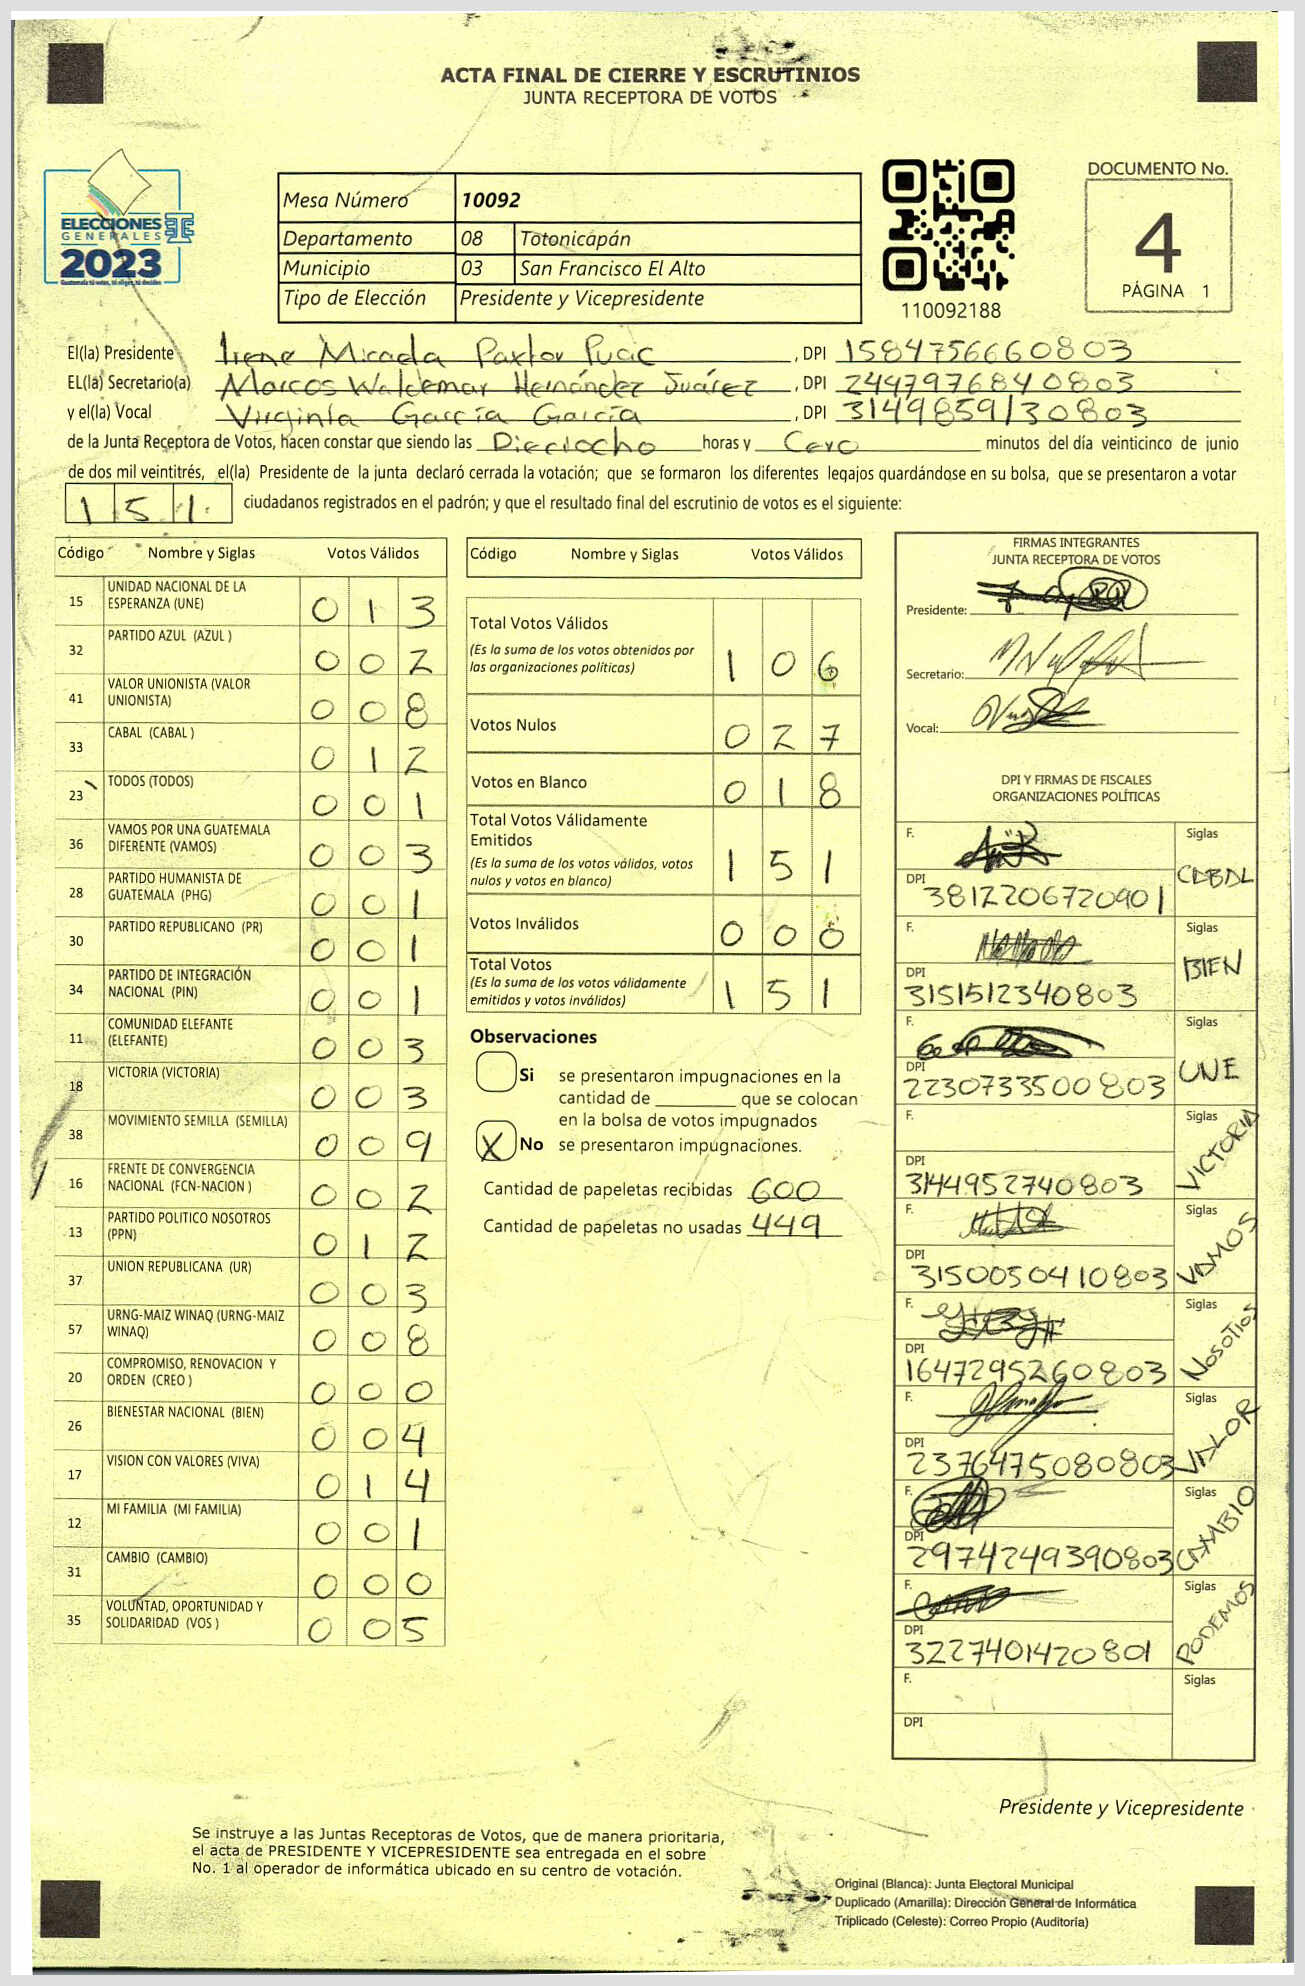 ACTA FINAL DE CIERRE Y ESCRUTINIOS
JUNTA RECEPTORA DE VOTOS
ELECCIONES
GENERALES
2023
Mesa Número 10092
Departamento 08 Totonicapán
Municipio 03 San Francisco El Alto
Tipo de Elección Presidente y Vicepresidente
110092188
DOCUMENTO No.
4
PÁGINA 1
El(la) Presidente Irene Micada Paxtor Pucic , DPI 1584756660803
EL(la) Secretario(a) Marcos Waldemar Hernández Juárez , DPI 2449797684 0803
y el(la) Vocal Virginia García García , DPI 3149859130803
de la Junta Receptora de Votos, hacen constar que siendo las Dieciocho horas y Cero minutos del día veinticinco de junio
de dos mil veintitrés, el(la) Presidente de la junta declaró cerrada la votación; que se formaron los diferentes legajos quardándose en su bolsa, que se presentaron a votar
151 ciudadanos registrados en el padrón; y que el resultado final del escrutinio de votos es el siguiente:
Código Nombre y Siglas Votos Válidos
15 UNIDAD NACIONAL DE LA ESPERANZA (UNE) 013
32 PARTIDO AZUL (AZUL ) 002
41 VALOR UNIONISTA (VALOR UNIONISTA) 008
33 CABAL (CABAL ) 012
23 TODOS (TODOS) 001
36 VAMOS POR UNA GUATEMALA DIFERENTE (VAMOS) 003
28 PARTIDO HUMANISTA DE GUATEMALA (PHG) 001
30 PARTIDO REPUBLICANO (PR) 001
34 PARTIDO DE INTEGRACIÓN NACIONAL (PIN) 001
11 COMUNIDAD ELEFANTE (ELEFANTE) 003
18 VICTORIA (VICTORIA) 003
38 MOVIMIENTO SEMILLA (SEMILLA) 009
16 FRENTE DE CONVERGENCIA NACIONAL (FCN-NACION ) 002
13 PARTIDO POLITICO NOSOTROS (PPN) 012
37 UNION REPUBLICANA (UR) 003
57 URNG-MAIZ WINAQ (URNG-MAIZ WINAQ) 008
20 COMPROMISO, RENOVACION Y ORDEN (CREO ) 000
26 BIENESTAR NACIONAL (BIEN) 004
17 VISION CON VALORES (VIVA) 014
12 MI FAMILIA (MI FAMILIA) 001
31 CAMBIO (CAMBIO) 000
35 VOLUNTAD, OPORTUNIDAD Y SOLIDARIDAD (VOS ) 005
Código Nombre y Siglas Votos Válidos
Total Votos Válidos 106
(Es la suma de los votos obtenidos por
las organizaciones políticas)
Votos Nulos 027
Votos en Blanco 018
Total Votos Válidamente
Emitidos 151
(Es la suma de los votos válidos, votos
nulos y votos en blanco)
Votos Inválidos 000
Total Votos 151
(Es la suma de los votos válidamente
emitidos y votos inválidos)
Observaciones
Si se presentaron impugnaciones en la
cantidad de ________ que se colocan
en la bolsa de votos impugnados
X No se presentaron impugnaciones.
Cantidad de papeletas recibidas 600
Cantidad de papeletas no usadas 449
FIRMAS INTEGRANTES
JUNTA RECEPTORA DE VOTOS
Presidente:
Secretario:
Vocal:
DPI Y FIRMAS DE FISCALES
ORGANIZACIONES POLÍTICAS
F. Siglas CABAL
DPI 3812206720901
F. Siglas BIEN
DPI 3151512340803
F. Siglas UNE
DPI 2230733500803
F. Siglas VICTORIA
DPI 3144952740803
F. Siglas VAMOS
DPI 3150050410803
F. Siglas Nosotros
DPI 1647295260803
F. Siglas VALOR
DPI 2376475080803
F. Siglas CAMBIO
DPI 2974249390803
F. Siglas PODEMOS
DPI 3227401420801
F. Siglas
DPI
Presidente y Vicepresidente
Se instruye a las Juntas Receptoras de Votos, que de manera prioritaria,
el acta de PRESIDENTE Y VICEPRESIDENTE sea entregada en el sobre
No. 1 al operador de informática ubicado en su centro de votación.
Original (Blanca): Junta Electoral Municipal
Duplicado (Amarilla): Dirección General de Informática
Triplicado (Celeste): Correo Propio (Auditoría)